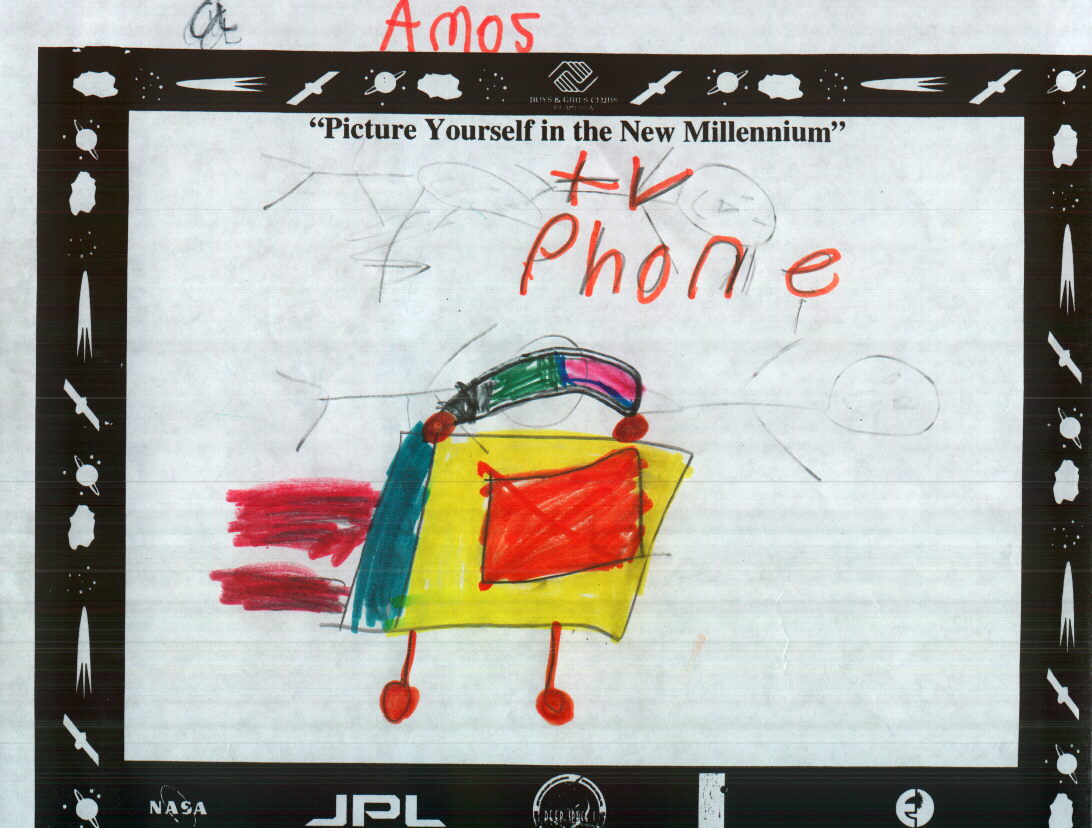 Amos
BOYS & GIRLS CLUBS
OF AMERICA
“Picture Yourself in the New Millennium”
tv
Phone
NASA
JPL
DEEP SPACE 1